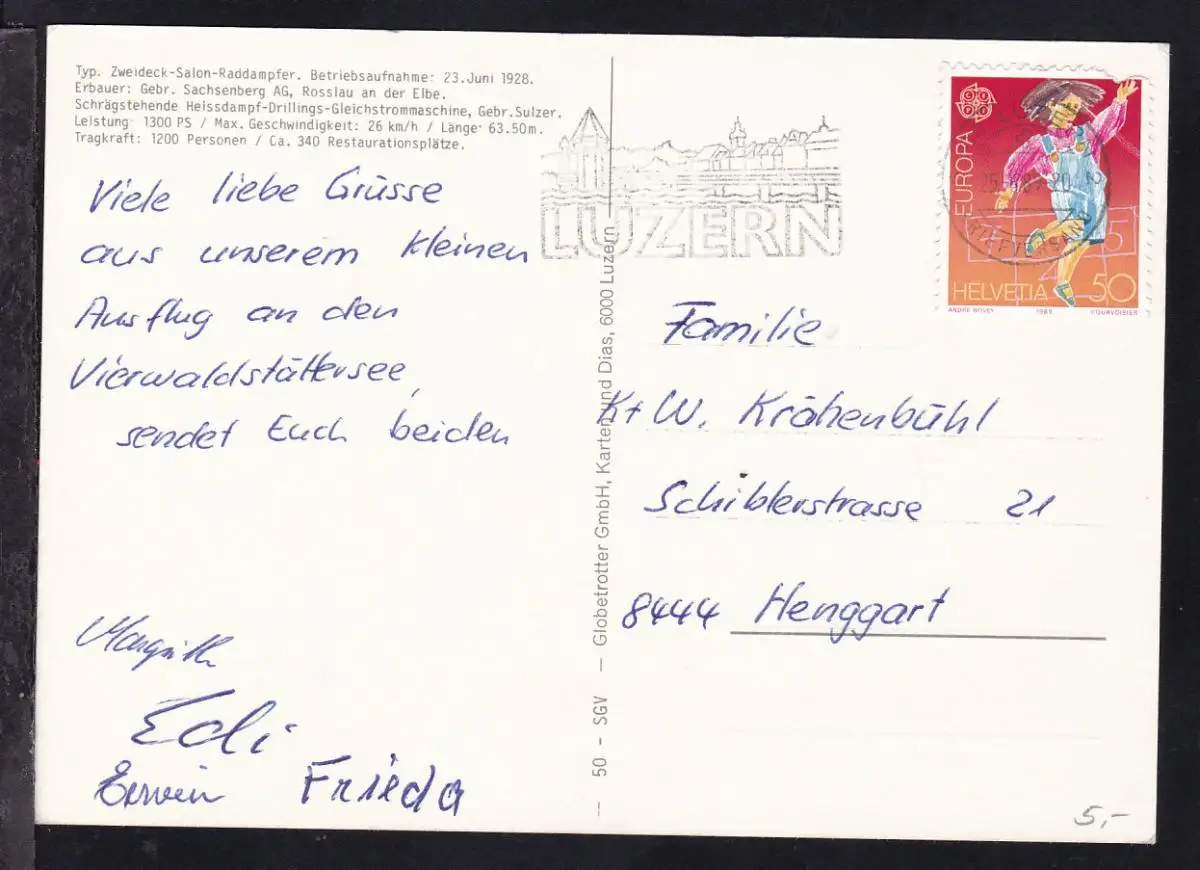 Typ. Zweideck-Salon-Raddampfer. Betriebsaufnahme: 23.Juni 1928.
Erbauer: Gebr. Sachsenberg AG, Rosslau an der Elbe.
Schrägstehende Heissdampf-Drillings-Gleichstrommaschine, Gebr.Sulzer.
Leistung 1300 PS / Max. Geschwindigkeit: 26 km/h / Länge 63.50m.
Tragkraft: 1200 Personen / Ca. 340 Restaurationsplätze.
Viele liebe Grüsse
aus unserem kleinen
Ausflug an den
Vierwaldstättersee,
sendet Euch beiden
Margrith
Edi
Erwin Frieda
50 - SGV — Globetrotter GmbH, Karten und Dias, 6000 Luzern
LUZERN
EUROPA
HELVETIA 50
ANDRÉ BOVEY 1989 COURVOISIER
Familie
K+W. Krähenbühl
Schiblerstrasse 21
8444 Henggart
5,-